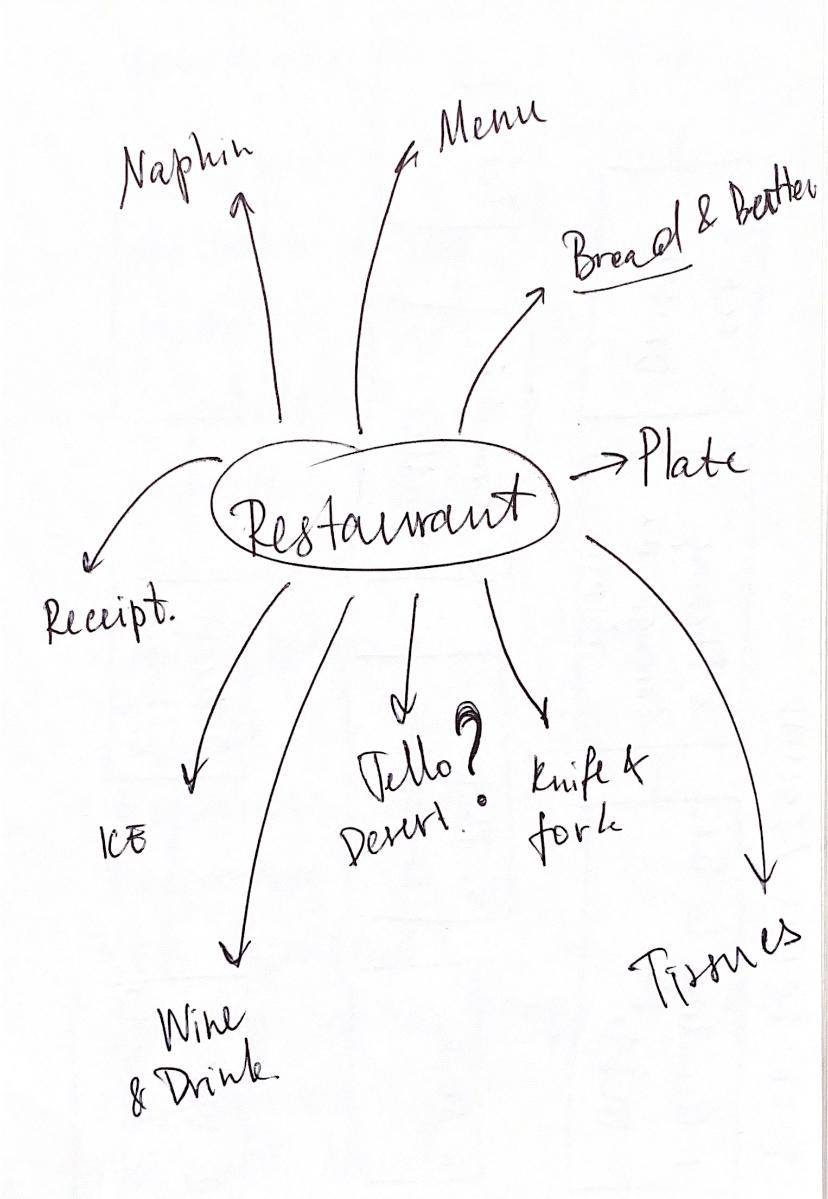 Menu
Naphin
Bread & Butter
Plate
Restaurant
Receipt.
Jello?
Desert.
Knife &
fork
ICE
Tissues
Wine
& Drink